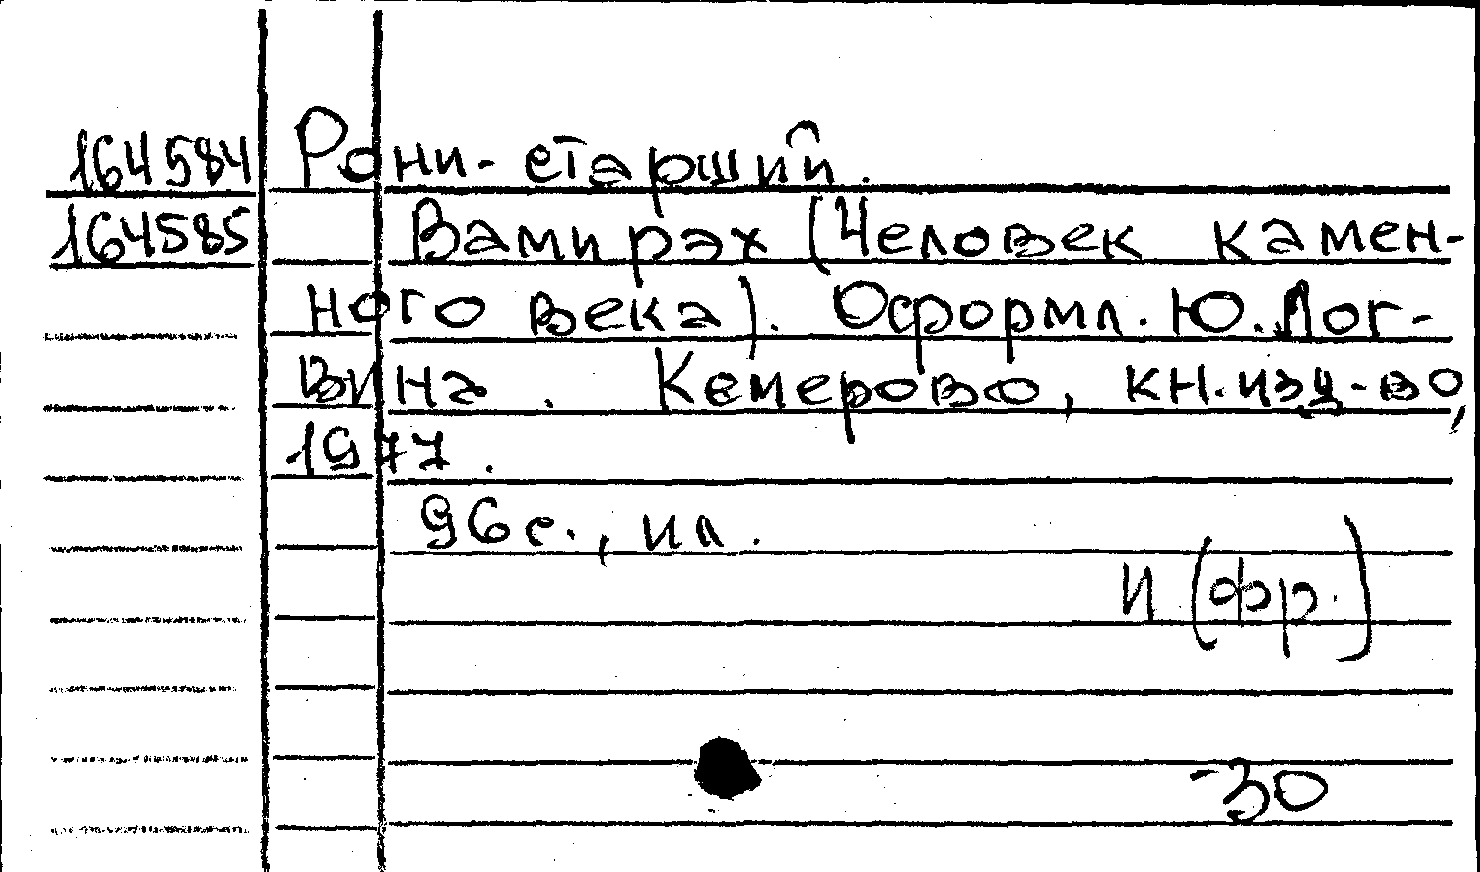 164584 Рони-старший.
164585 Вамирэх (Человек камен-
ного века). Оформл. Ю. Лог-
вина. Кемерово, кн. изд-во,
1977.
96 с., ил.
И (фр.)
-30